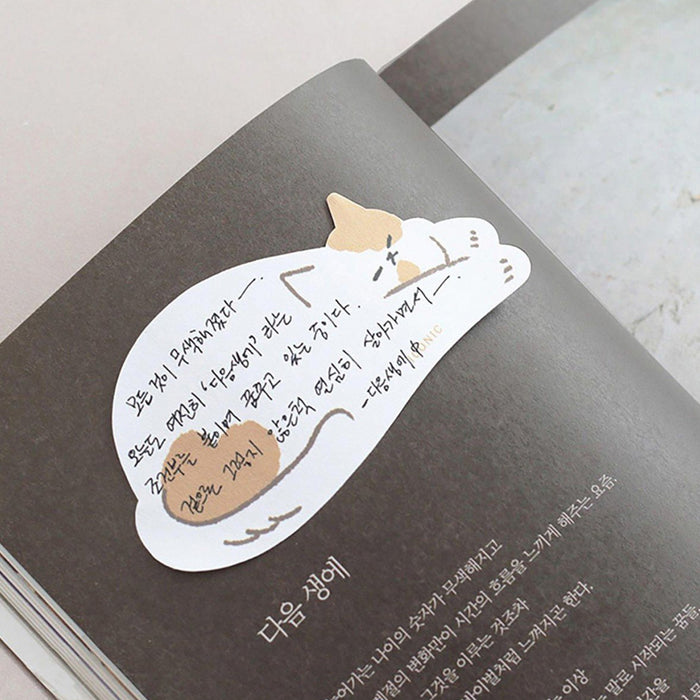 모든 것이 무색해졌다 —.
오늘도 여전히 '다음생에' 라는
조건부를 붙이며 꿈꾸고 있는 중이다.
겉으로 그렇지 않은척 열심히 살아가면서 —.
- 다음생에 中
ONIC
다음 생에
어가는 나이의 숫자가 무색해지고
계절의 변화만이 시간의 흐름을 느끼게 해주는 요즘,
그것을 이루는 것조차
처럼 느껴지곤 한다.
이상
말로 시작되는 꿈들